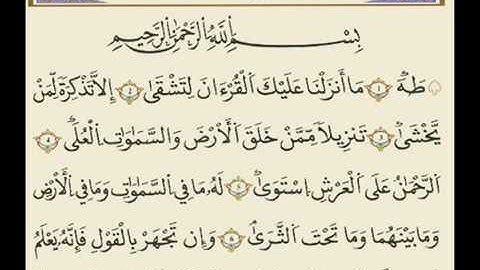 بِسْمِ اللَّهِ الرَّحْمَٰنِ الرَّحِيمِ
طه ١ مَا أَنزَلْنَا عَلَيْكَ الْقُرْءَانَ لِتَشْقَىٰ ٢ إِلَّا تَذْكِرَةً لِّمَنْ
يَخْشَىٰ ٣ تَنزِيلًا مِّمَّنْ خَلَقَ الْأَرْضَ وَالسَّمَٰوَٰتِ الْعُلَى ٤
الرَّحْمَٰنُ عَلَى الْعَرْشِ اسْتَوَىٰ ٥ لَهُ مَا فِي السَّمَٰوَٰتِ وَمَا فِي الْأَرْضِ
وَمَا بَيْنَهُمَا وَمَا تَحْتَ الثَّرَىٰ ٦ وَإِن تَجْهَرْ بِالْقَوْلِ فَإِنَّهُ يَعْلَمُ